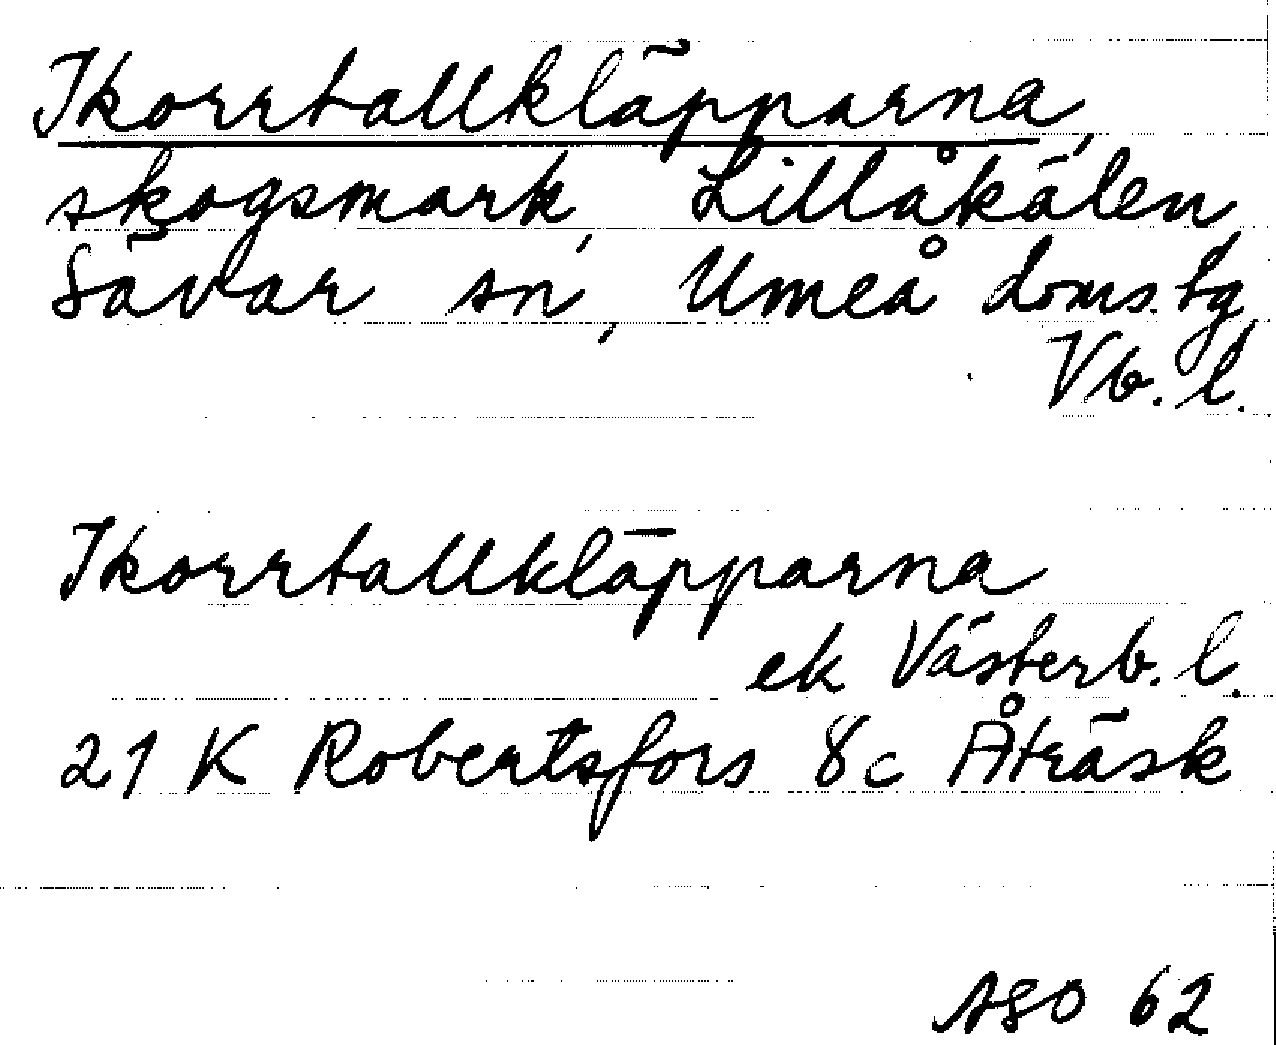 Ikorrtallkläpparna,
skogsmark, Lillåkälen
Sävar sn, Umeå doms.tg
Vb. l.
Ikorrtallkläpparna
ek Västerb. l.
21 K Robertsfors 8c Åträsk
ASO 62